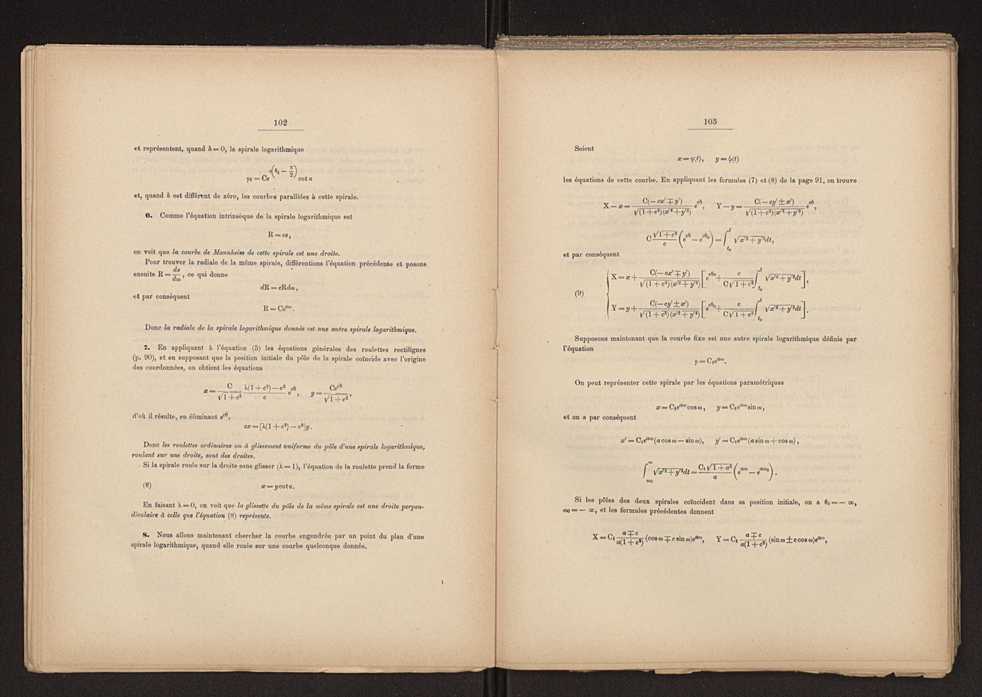 102
et représentent, quand h = 0, la spirale logarithmique
et, quand h est différent de zéro, les courbes parallèles à cette spirale.
6. Comme l'équation intrinsèque de la spirale logarithmique est
R = cs,
on voit que la courbe de Mannheim de cette spirale est une droite.
Pour trouver la radiale de la même spirale, différentions l'équation précédente et posons
ensuite R = ds/dω, ce qui donne
dR = cRdω,
et par conséquent
R = Ce^{cω}.
Donc la radiale de la spirale logarithmique donnée est une autre spirale logarithmique.
7. En appliquant à l'équation (5) les équations générales des roulettes rectilignes
(p. 90), et en supposant que la position initiale du pôle de la spirale coïncide avec l'origine
des coordonnées, on obtient les équations
x = C/√(1+c²) · (λ(1+c²) − c²)/c · e^{cθ}, y = Ce^{cθ}/√(1+c²),
d'où il résulte, en éliminant e^{cθ},
cx = [λ(1 + c²) − c²]y.
Donc les roulettes ordinaires ou à glissement uniforme du pôle d'une spirale logarithmique,
roulant sur une droite, sont des droites.
Si la spirale roule sur la droite sans glisser (λ = 1), l'équation de la roulette prend la forme
(8) x = y cot α.
En faisant λ = 0, on voit que la glissette du pôle de la même spirale est une droite perpen-
diculaire à celle que l'équation (8) représente.
8. Nous allons maintenant chercher la courbe engendrée par un point du plan d'une
spirale logarithmique, quand elle roule sur une courbe quelconque donnée.
103
Soient
x = φ(t), y = ψ(t)
les équations de cette courbe. En appliquant les formules (7) et (8) de la page 91, on trouve
X − x = C(−cx′ ∓ y′)/√((1+c²)(x′²+y′²)) e^{cθ}, Y − y = C(−cy′ ± x′)/√((1+c²)(x′²+y′²)) e^{cθ},
C √(1+c²)/c (e^{cθ} − e^{cθ₀}) = ∫_{t₀}^{t} √(x′²+y′²) dt,
et par conséquent
(9) X = x + C(−cx′ ∓ y′)/√((1+c²)(x′²+y′²)) [e^{cθ₀} + c/(C√(1+c²)) ∫_{t₀}^{t} √(x′²+y′²) dt],
Y = y + C(−cy′ ± x′)/√((1+c²)(x′²+y′²)) [e^{cθ₀} + c/(C√(1+c²)) ∫_{t₀}^{t} √(x′²+y′²) dt].
Supposons maintenant que la courbe fixe est une autre spirale logarithmique définie par
l'équation
ρ = C₁e^{aω}.
On peut représenter cette spirale par les équations paramétriques
x = C₁e^{aω} cos ω, y = C₁e^{aω} sin ω,
et on a par conséquent
x′ = C₁e^{aω}(a cos ω − sin ω), y′ = C₁e^{aω}(a sin ω + cos ω),
∫_{ω₀}^{ω} √(x′²+y′²) dt = C₁√(1+a²)/a (e^{aω} − e^{aω₀}).
Si les pôles des deux spirales coïncident dans sa position initiale, on a θ₀ = − ∞,
ω₀ = − ∞, et les formules précédentes donnent
X = C₁ (a ∓ c)/(a(1+c²)) (cos ω ∓ c sin ω)e^{aω}, Y = C₁ (a ∓ c)/(a(1+c²)) (sin ω ± c cos ω)e^{aω},